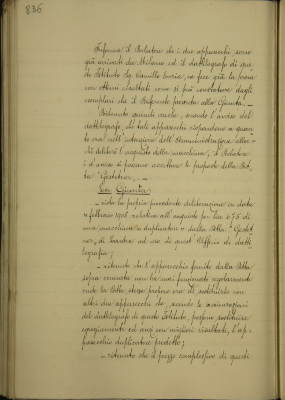 836
Informa il Relatore che i due apparecchi sono
già arrivati da Milano ed il dattilografo di que-
sto Istituto Sig. Camillo ne fece già la prova
con ottimi risultati come si può constatare dagli
esemplari che il Riferente presenta alla Giunta. —
Ritenuto quindi anche, secondo l'avviso del
dattilografo, che tali apparecchi rispondono a quan-
to era nell'intenzione dell'Amministrazione allor-
chè deliberò l'acquisto della macchina, il Relatore
è d'avviso si possano accettare le proposte della Dit-
ta "Gestetner". —
La Giunta
— vista la propria precedente deliberazione in data
febbraio 1905 relativa all'acquisto per lire 475 di
una macchina a duplicatore della Ditta "Gestet-
ner" di Londra ad uso di questo Ufficio di datti-
lografia;
— ritenuto che l'apparecchio fornito dalla Ditta
sopra cennata non ha mai funzionato regolarmente
onde la Ditta stessa propose ora di sostituirlo con
altri due apparecchi che, secondo le assicurazioni
del dattilografo di questo Istituto, possono sostituire
egregiamente ed anzi con migliori risultati, l'ap-
parecchio duplicatore predetto;
— ritenuto che il prezzo complessivo di questi